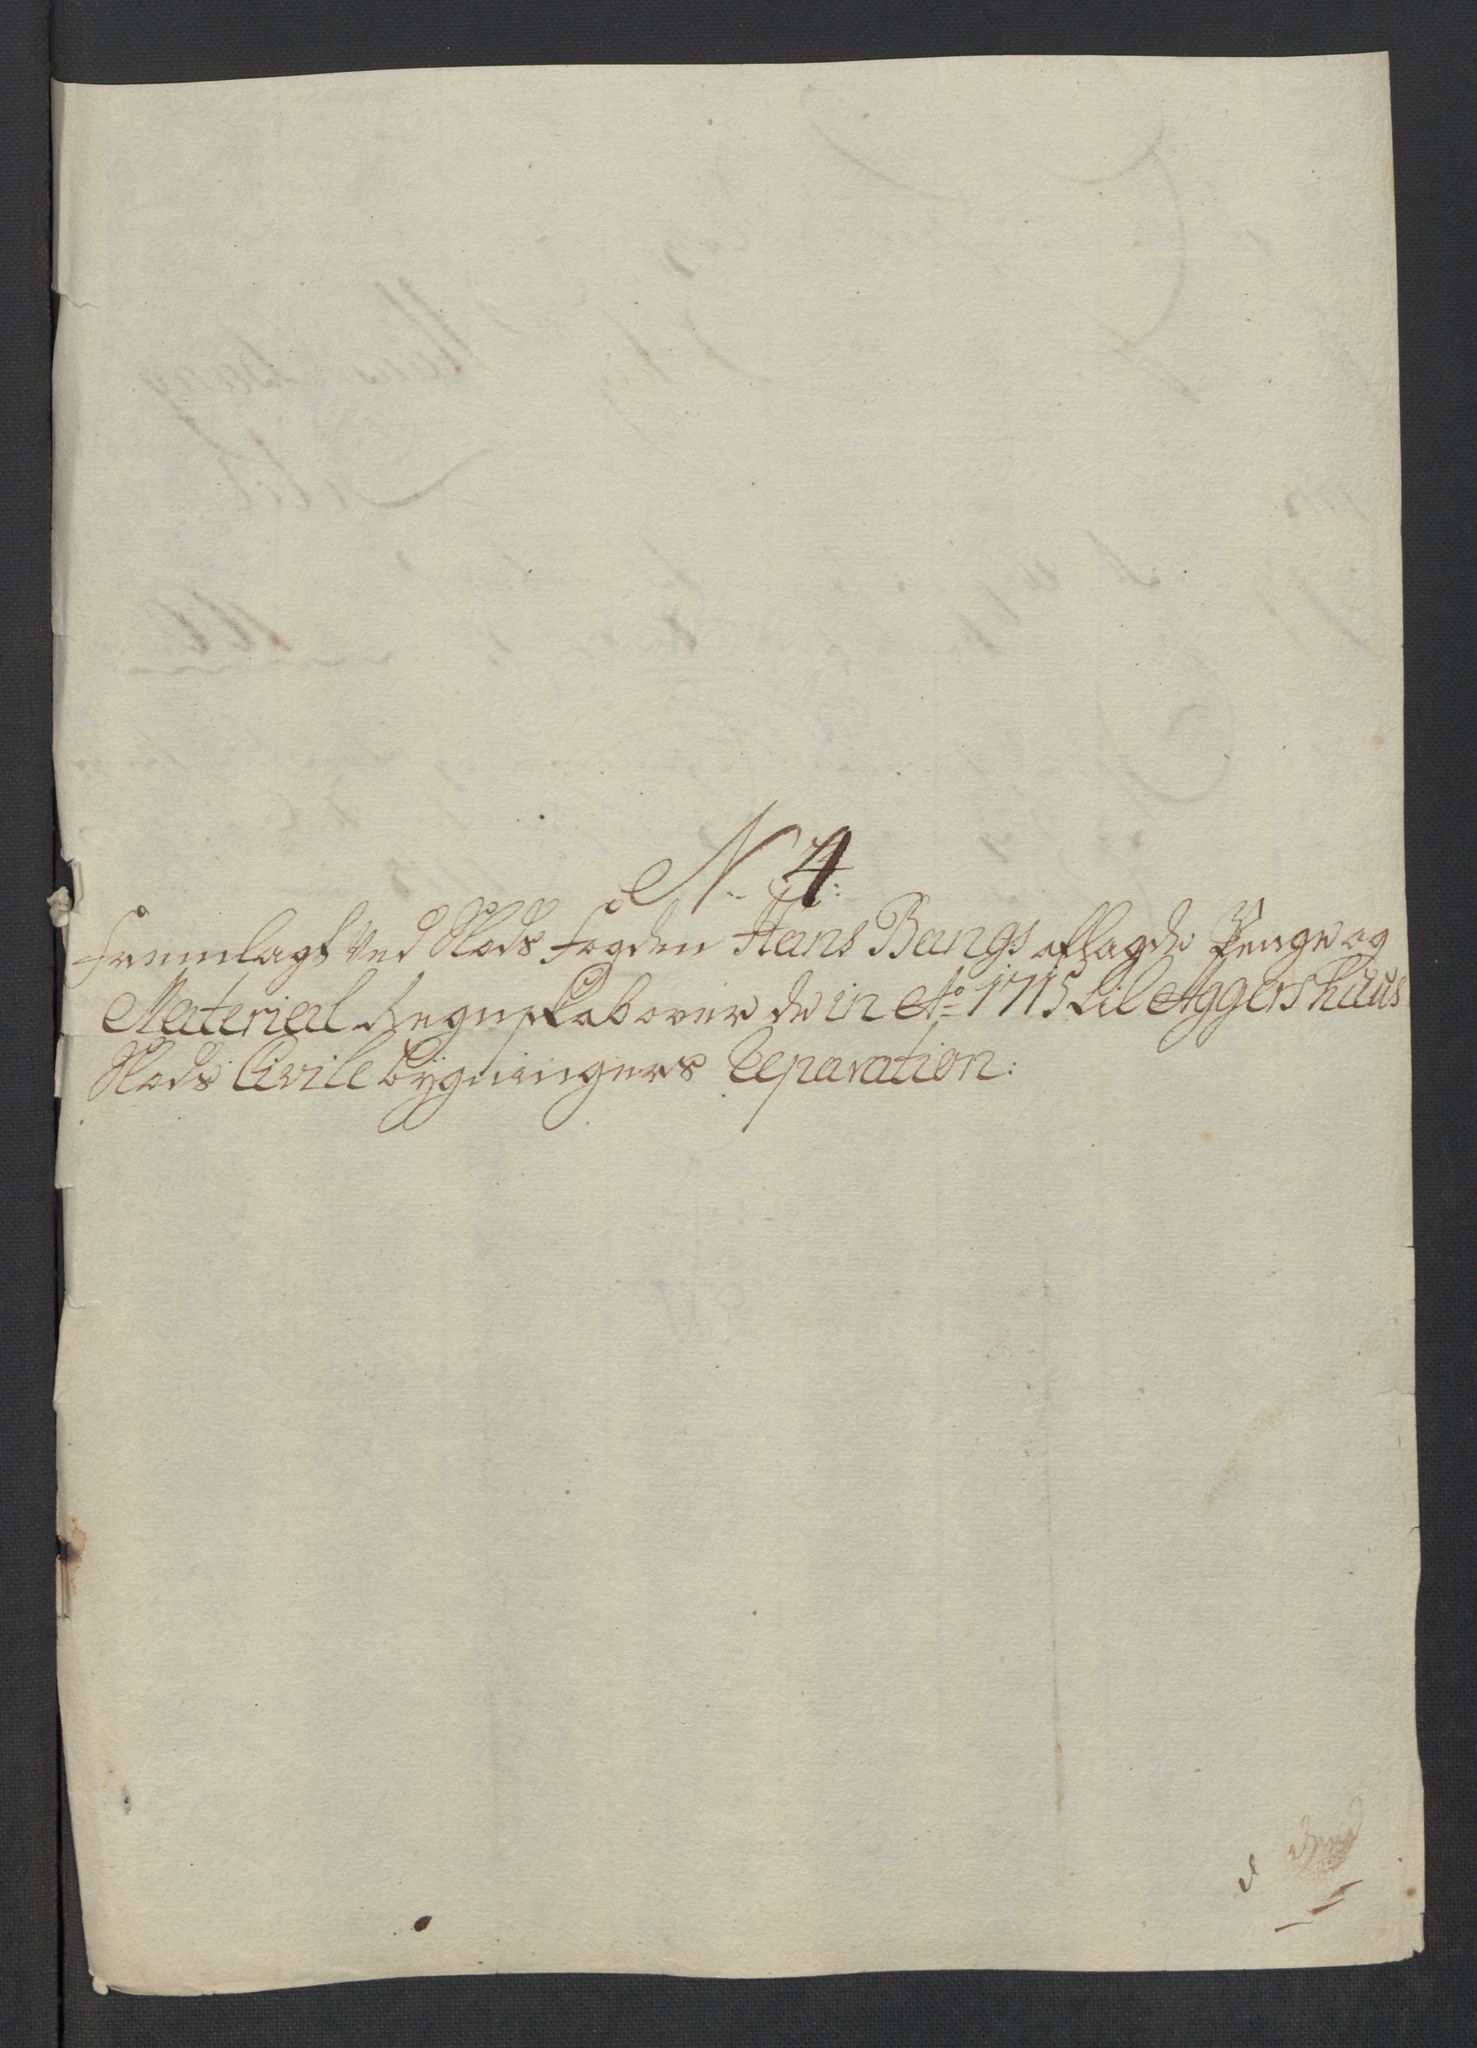 N. 4:
Fremlagt ved Slods Fogden Hans Bangs aflagde Penge og
Material Regnskab over de in Ao 1715 til Aggershuus
Slods Civile bygningers Reparation: